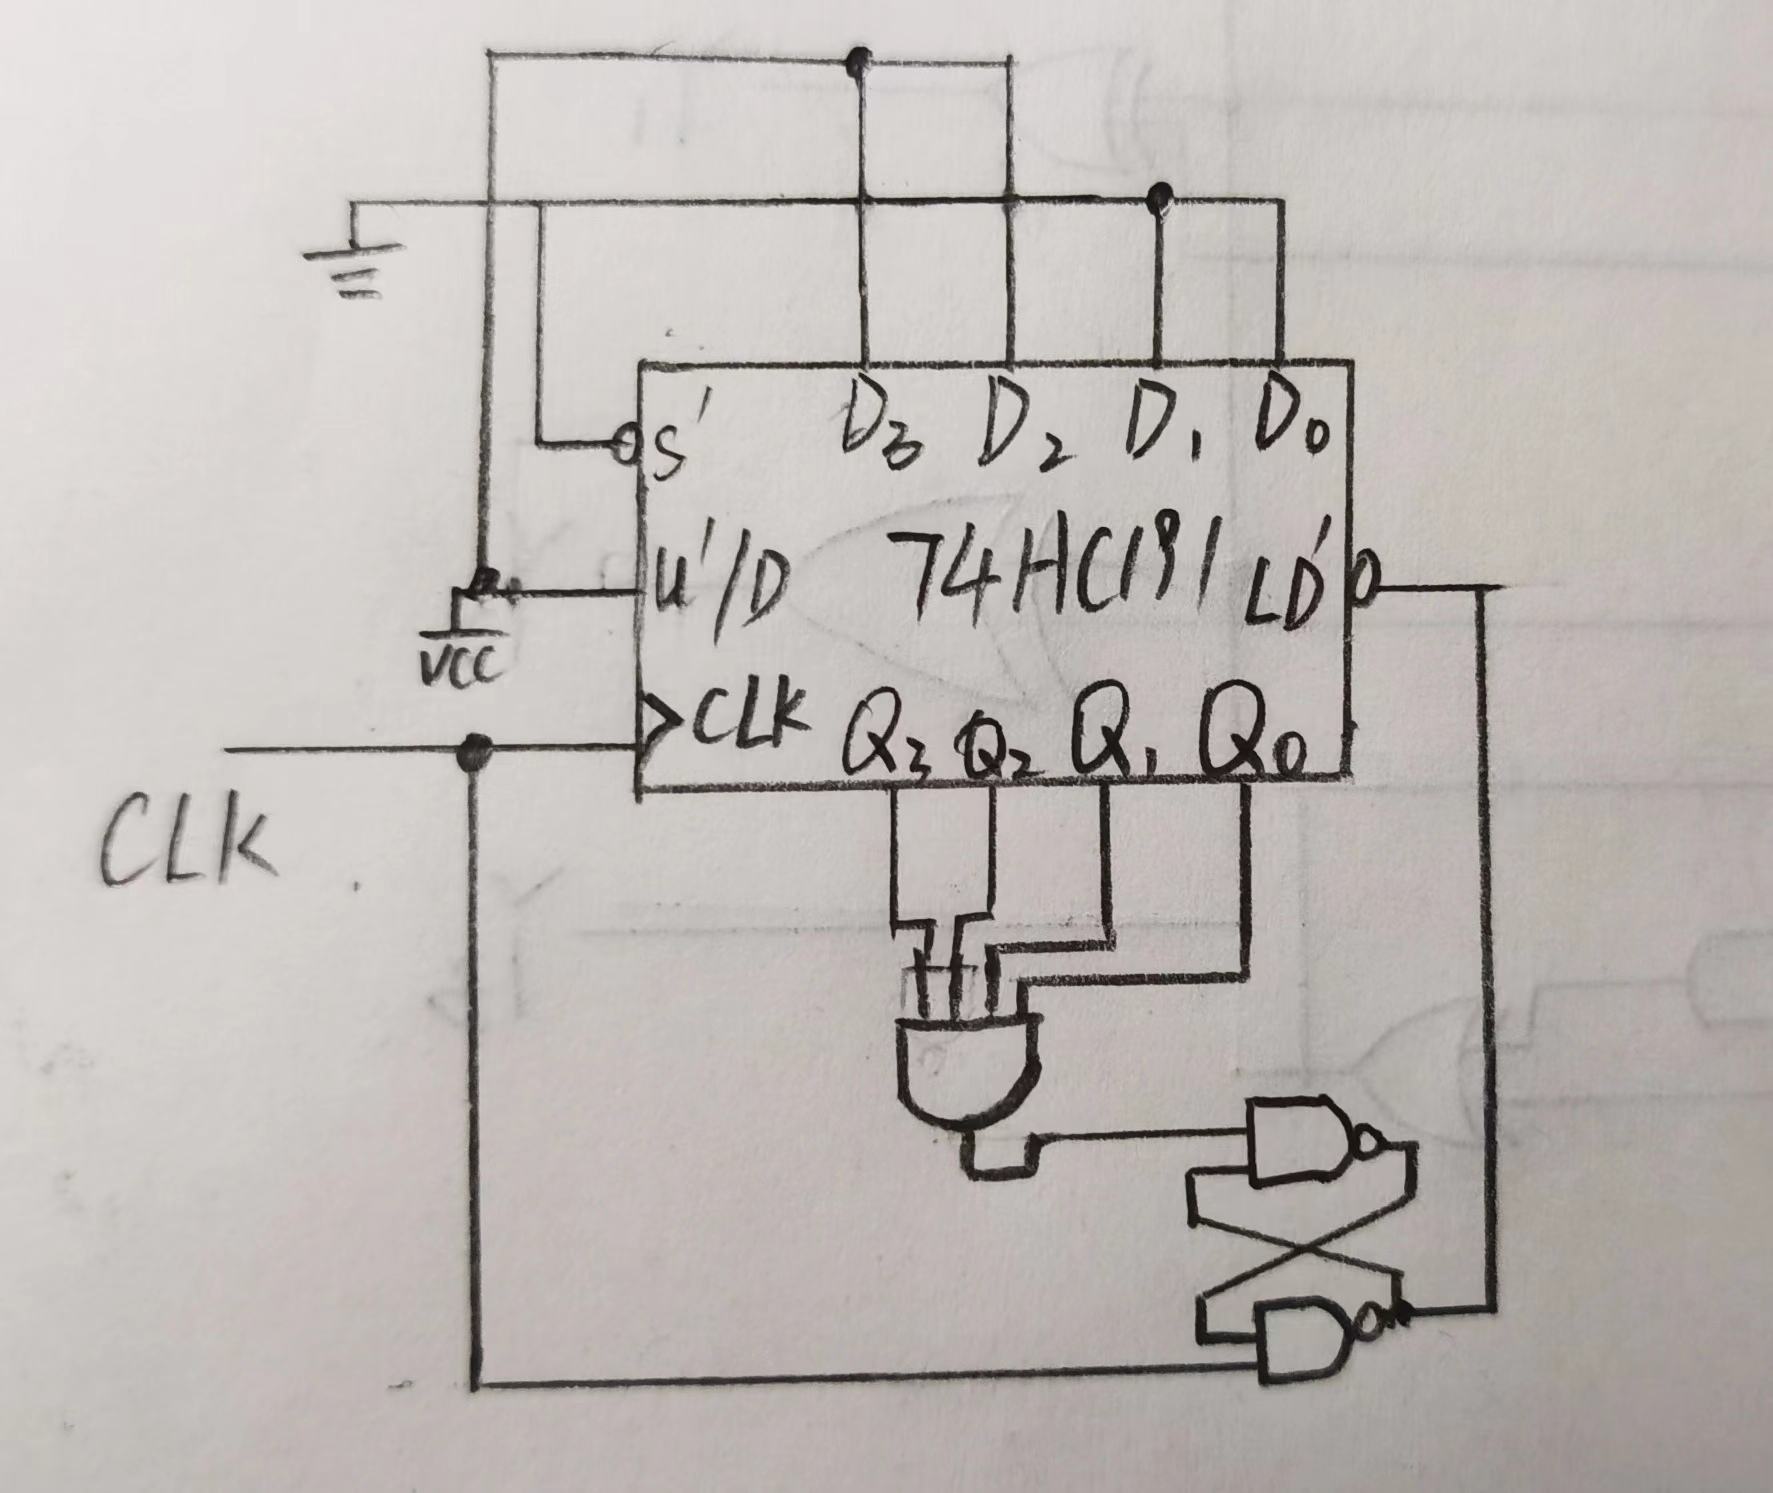 S' D₃ D₂ D₁ D₀
U'/D 74HC191 LD'
VCC
CLK Q₃ Q₂ Q₁ Q₀
CLK